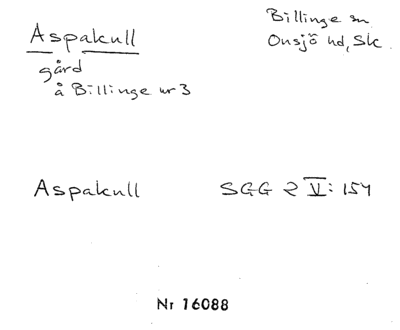 Aspakull
Billinge sn
Onsjö hd, Sk
gård
å Billinge nr 3
Aspakull SGG 2 V: 154
Nr 16088